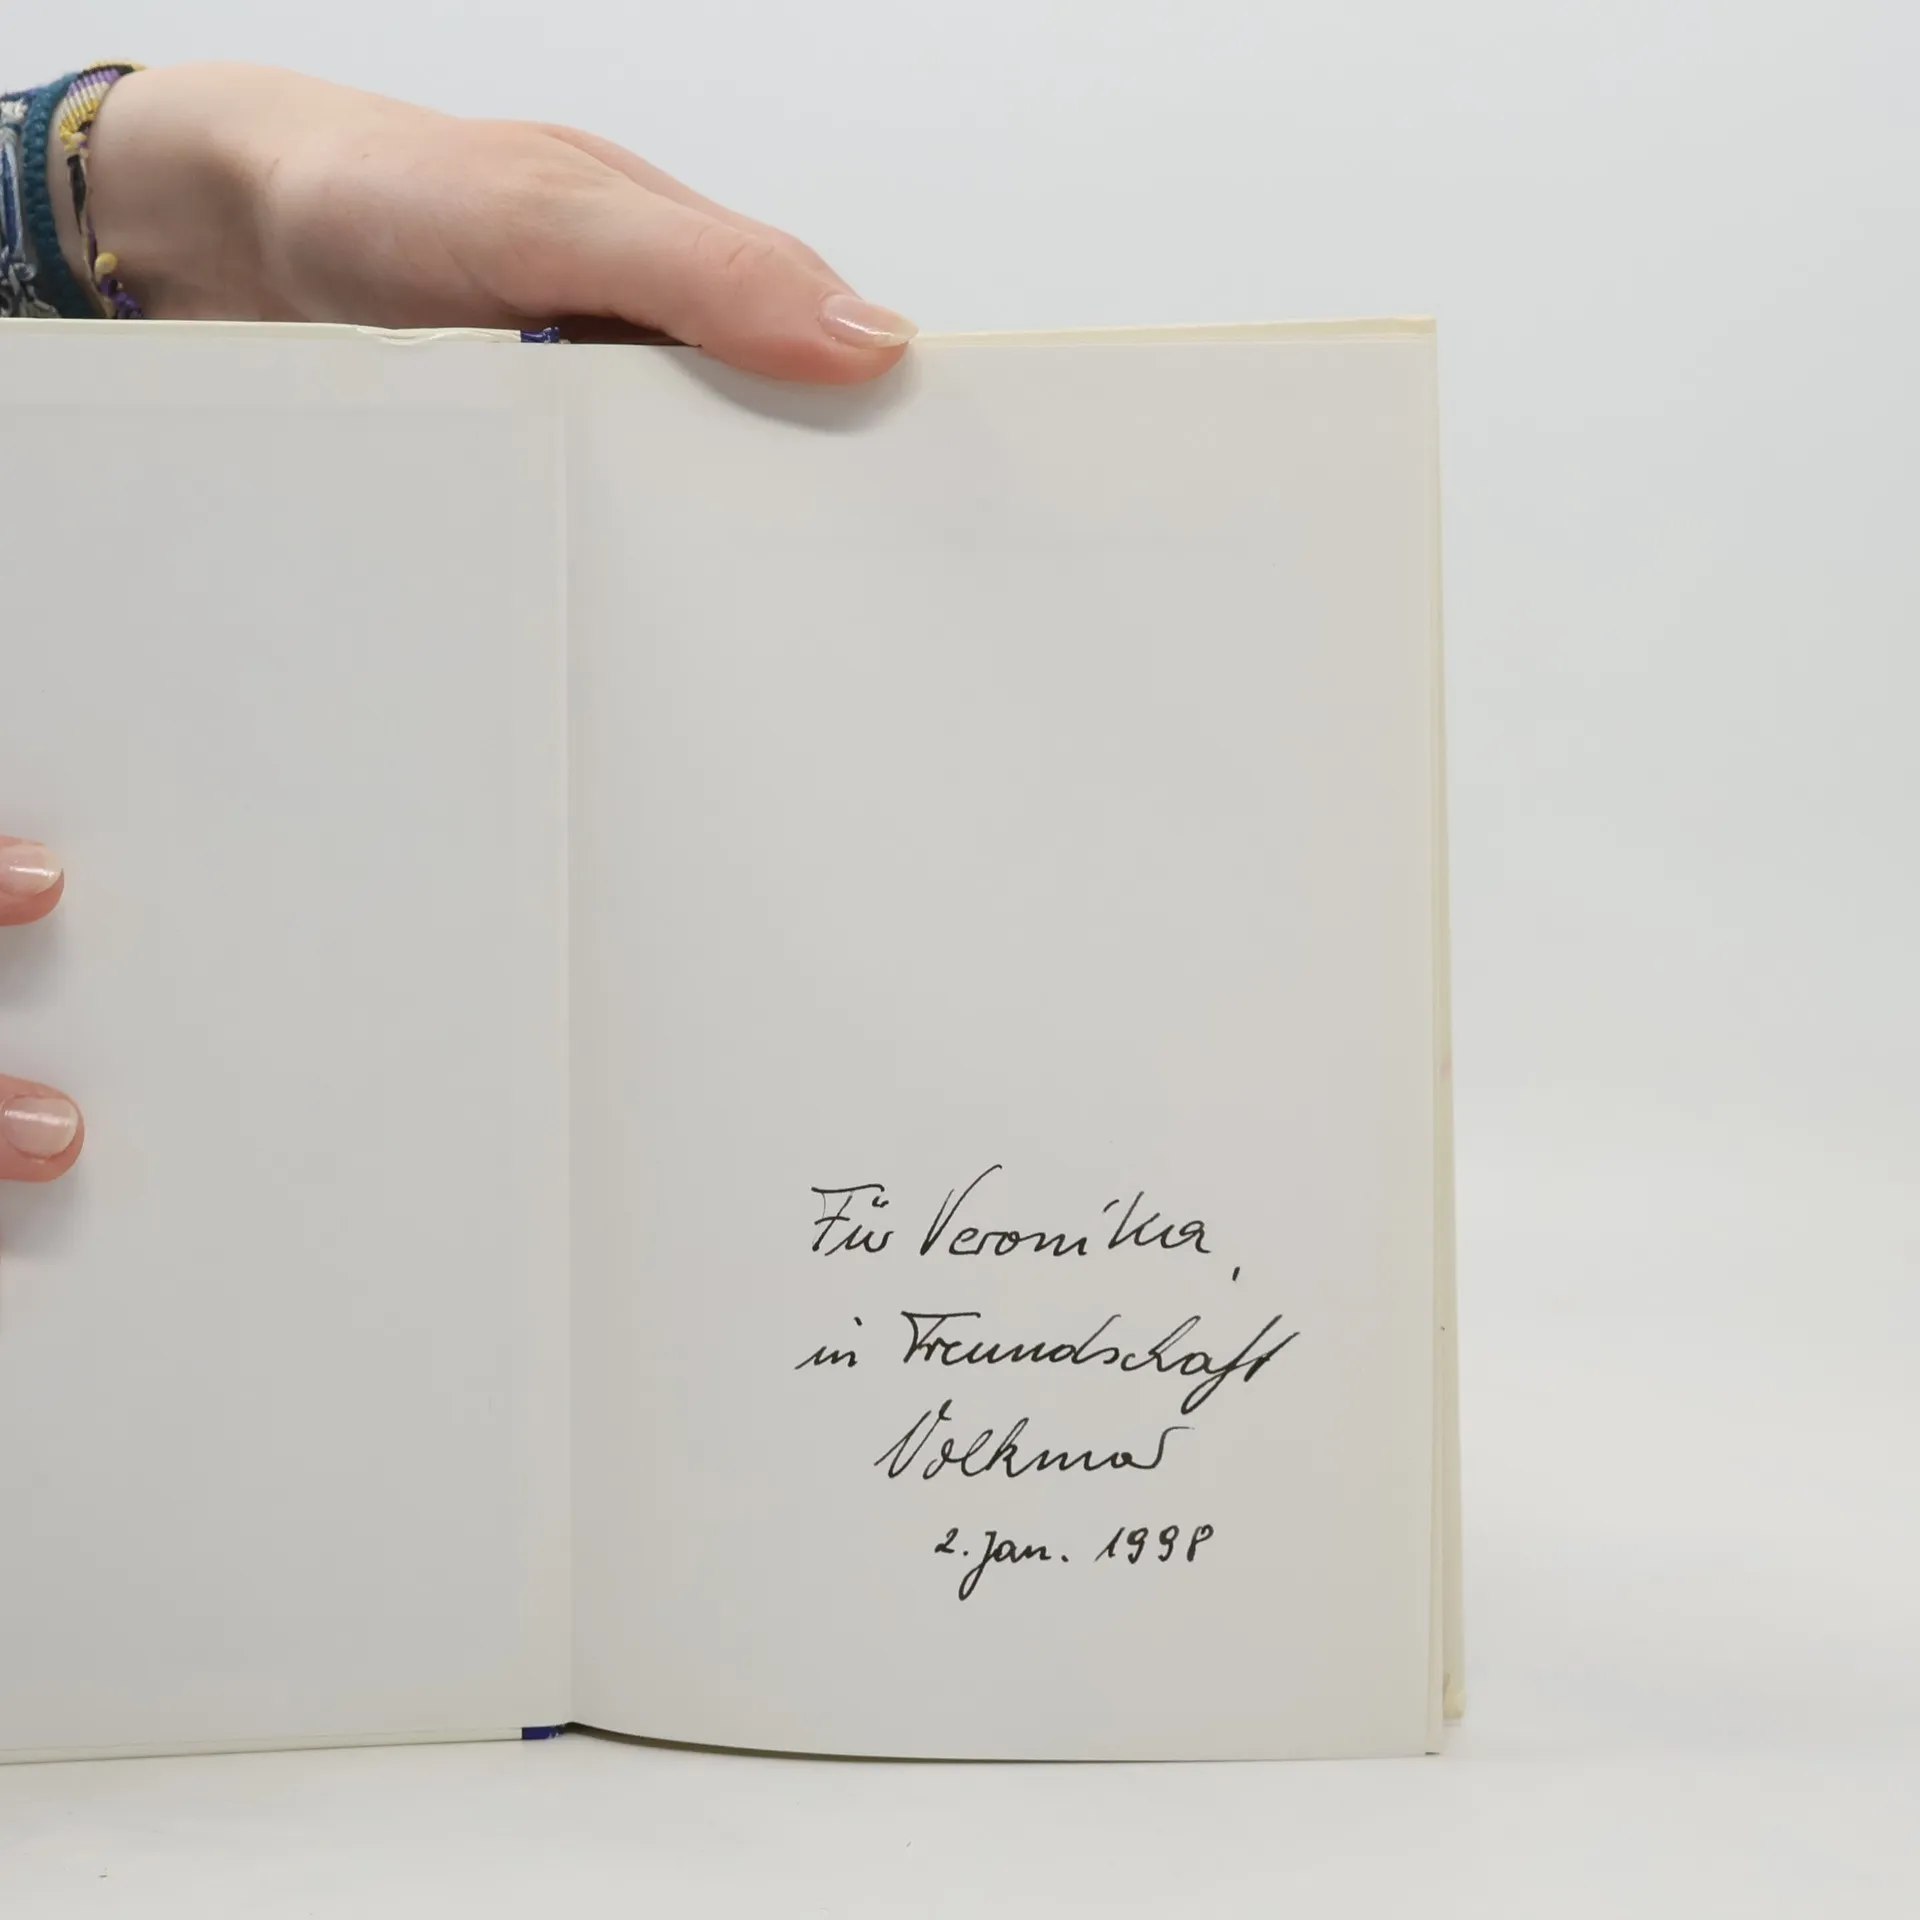 Für Veronika,
in Freundschaft
Volkmar
2. Jan. 1998